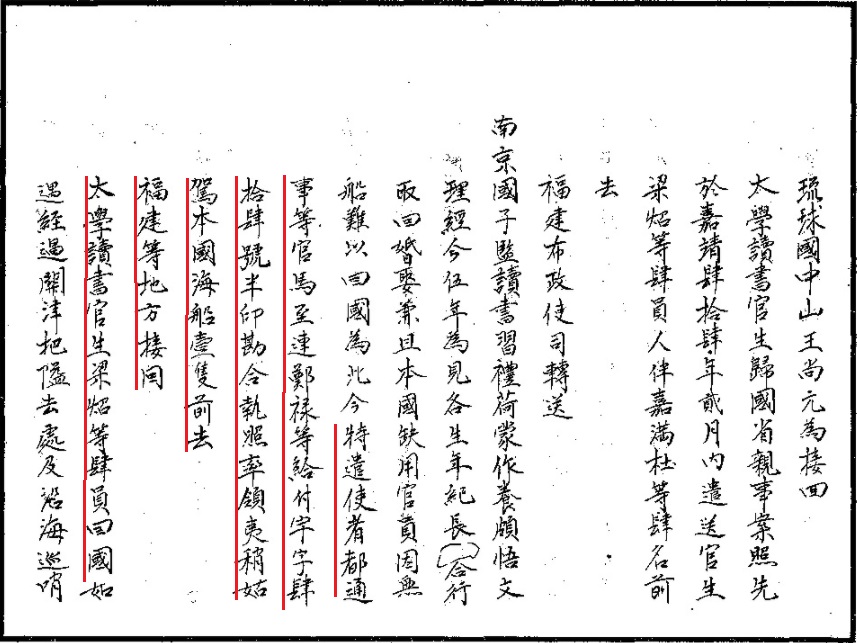 琉球國中山王尚元為接回
太學讀書官生歸國省親事案照先
於嘉靖肆拾肆年貳月內遣送官生
梁炤等肆員人伴嘉滿杜等肆名前
去
福建布政使司轉送
南京國子監讀書習禮荷蒙作養頗悟文
理經今伍年為見各生年紀長合行
取回婚娶兼且本國缺用官員因無
船難以回國為此今特遣使者都通
事等官馬至連鄭祿等給付字字肆
拾肆號半印勘合執照率領夷稍姑
駕本國海船壹隻前去
福建等地方接回
太學讀書官生梁炤等肆員回國如
遇經過關津把隘去處及沿海巡哨